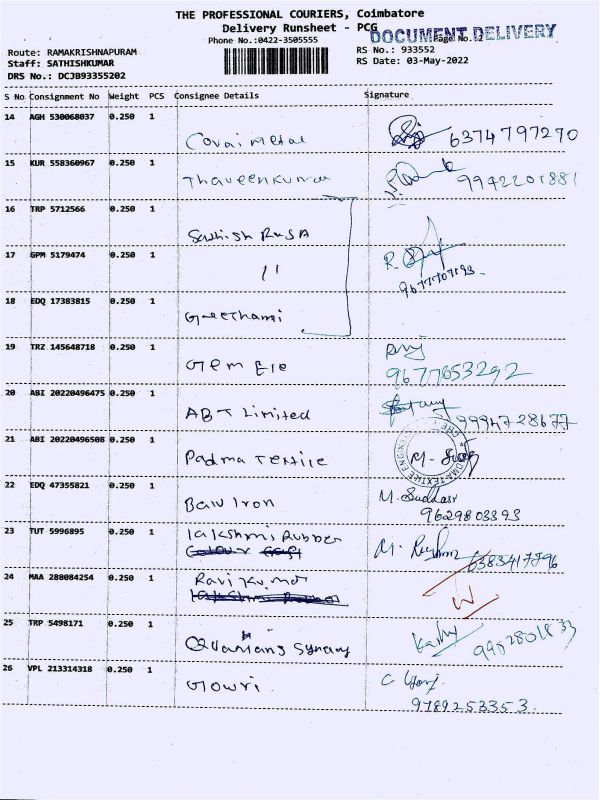 THE PROFESSIONAL COURIERS, Coimbatore
Delivery Runsheet - PCG
DOCUMENT DELIVERY
Phone No.:0422-3505555
Route: RAMAKRISHNAPURAM
RS No.: 933552
Staff: SATHISHKUMAR
RS Date: 03-May-2022
DRS No.: DCJB93355202
S No Consignment No Weight PCS Consignee Details Signature
14 AGH 530068037 0.250 1
Covai metal 6374797270
15 KUR 558360967 0.250 1
Thaveenkumar 9942201881
16 TRP 5712566 0.250 1
17 GPM 5179474 0.250 1
11
18 EDQ 17383815 0.250 1
19 TRZ 145648718 0.250 1
Gem Ele 9677653292
20 ABI 20220496475 0.250 1
ABT Limited 9994728677
21 ABI 20220496508 0.250 1
Padma Textile
22 EDQ 47355821 0.250 1
Baw Iron
9629803393
23 TUT 5996895 0.250 1
lakshmi Rubber
6383417796
24 MAA 288084254 0.250 1
Ravi Kumar
25 TRP 5498171 0.250 1
26 VPL 213314318 0.250 1
Gowri
9789253353.